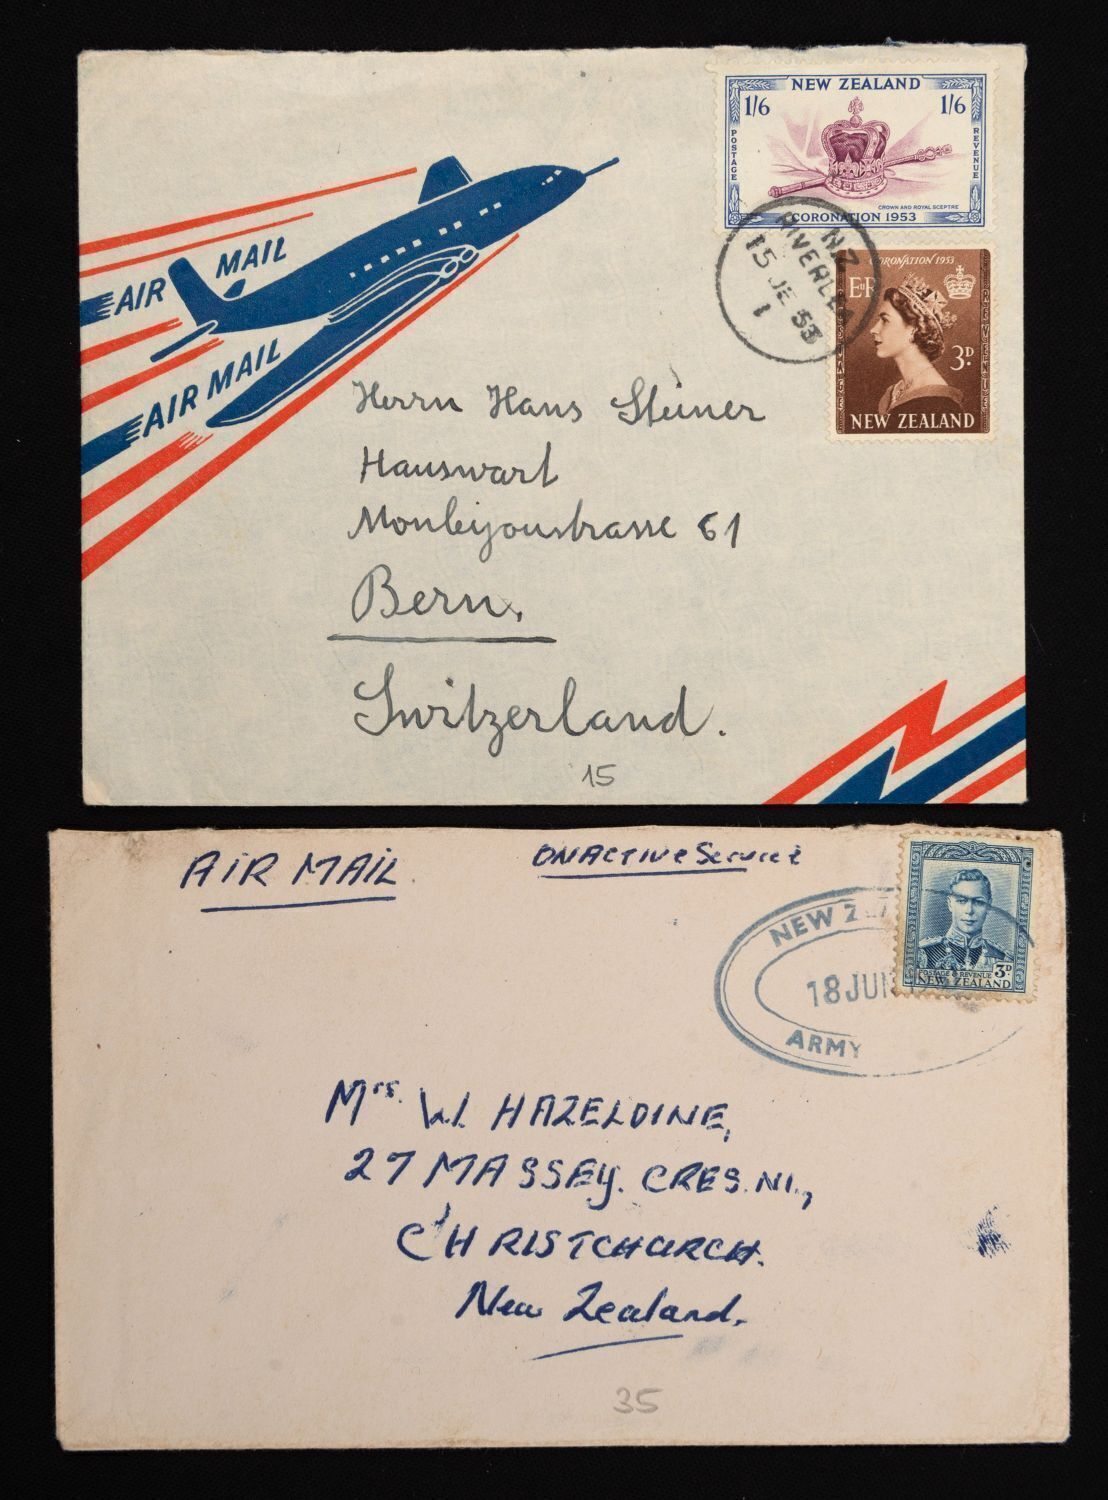 NEW ZEALAND
1/6 1/6
POSTAGE
REVENUE
CROWN AND ROYAL SCEPTRE
CORONATION 1953
AIR MAIL
AIR MAIL
N.Z
15 JE 53
1
CORONATION 1953
EIIR
3D
NEW ZEALAND
Herrn Hans Steiner
Hauswart
Monbijoustrasse 61
Bern.
Switzerland.
15
AIR MAIL
ON ACTIVE Service
NEW
18 JUN
ARMY
POSTAGE & REVENUE
3D
NEW ZEALAND
Mrs. W. HAZELDINE,
27 MASSEY. CRES. N1.,
CHRISTCHURCH.
New Zealand.
35